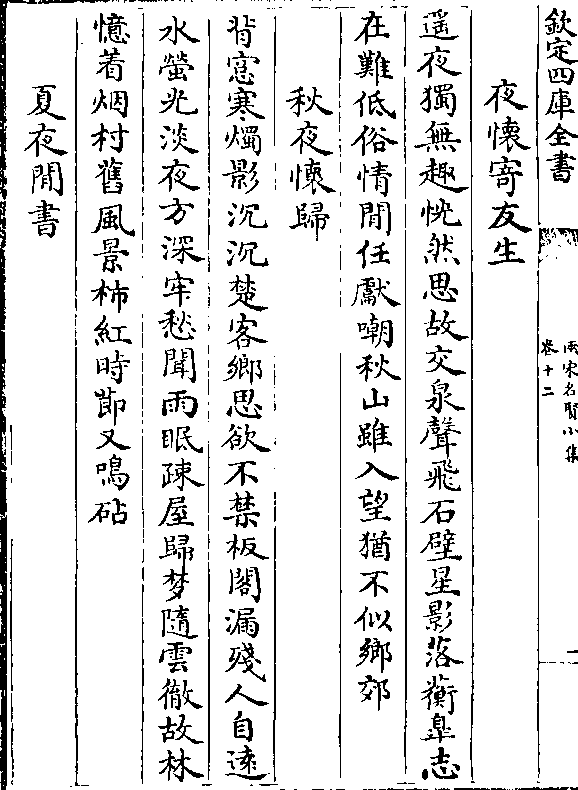 欽定四庫全書
兩宋名賢小集
卷十二
一
夜懷寄友生
遥夜獨無趣恍然思故交泉聲飛石壁星影落蘅臯志
在難低俗情閒任獻嘲秋山雖入望猶不似鄉郊
秋夜懷歸
背窓寒燭影沉沉楚客鄉思欲不禁板閣漏殘人自遠
水螢光淡夜方深牢愁聞雨眠疎屋歸梦隨雲徹故林
憶着烟村舊風景柿紅時節又鳴砧
夏夜閒書